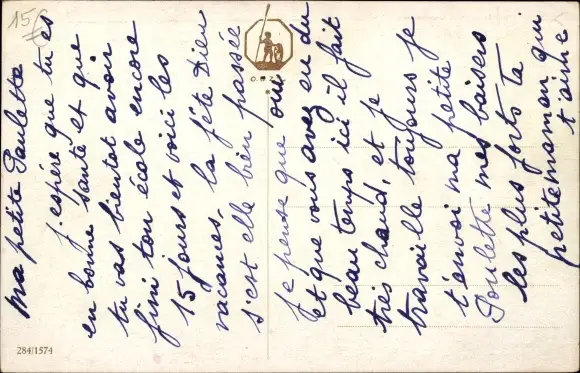 15
ma petite Paulette
j'espère que tu es
en bonne santé et que
tu vas bientot avoir
fini ton école encore
15 jours et voici les
vacances. la fête Dieu
s'est elle bien passée
je pense que oui
et que vous avez eu du
beau temps ici il fait
très chaud, et je
travaille toujours je
t'envoi ma petite
Poulette mes baisers
les plus forts ta
petite maman qui
t'aime
284/1574